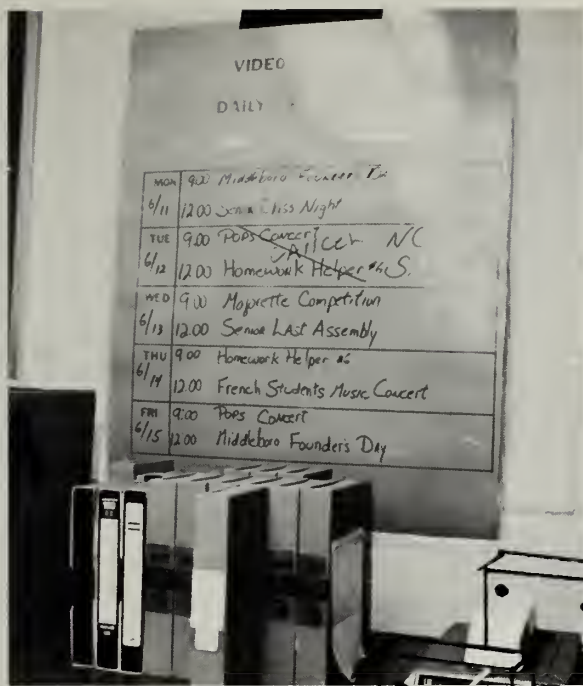 VIDEO
DAILY
MON 9:00 Middleboro Founders Day
6/11 12:00 Senior Class Night
TUE 9:00 POPS Concert
6/12 12:00 Homework Helper #6
WED 9:00 Majorette Competition
6/13 12:00 Senior LAst Assembly
THU 9:00 Homework Helper #6
6/14 12:00 French Students Music Concert
FRI 9:00 POPS Concert
6/15 12:00 Middleboro Founder's DAy